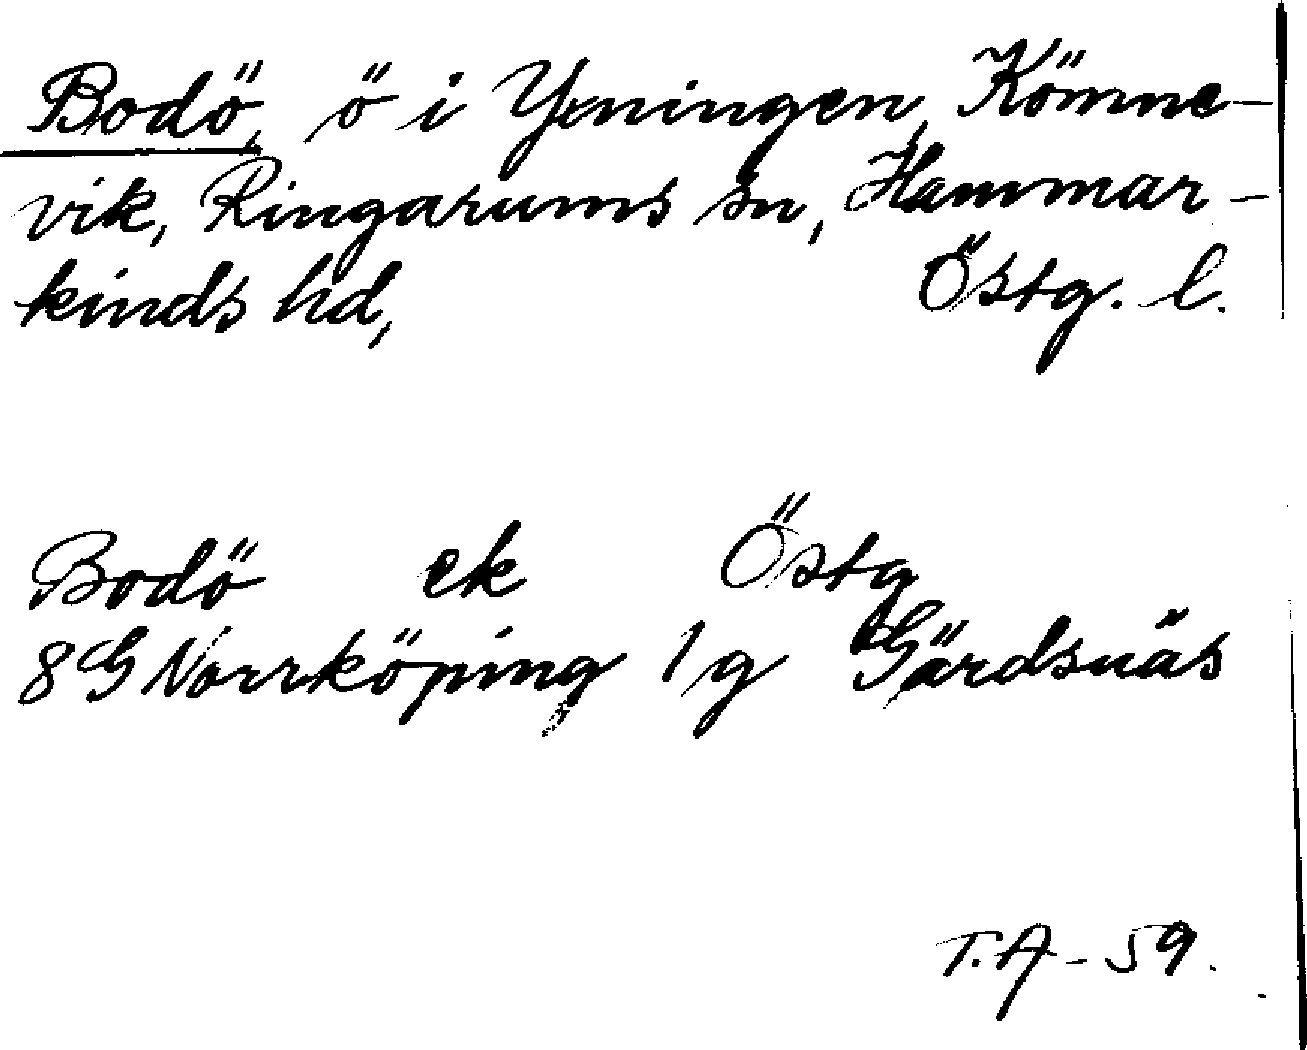 Bodö, ö i Yxningen, Kömne-
vik, Ringarums sn, Hammar-
kinds hd, Östg. l.
Bodö ek Östg
8G Norrköping 1 g Gärdsnäs
T.A - 59.